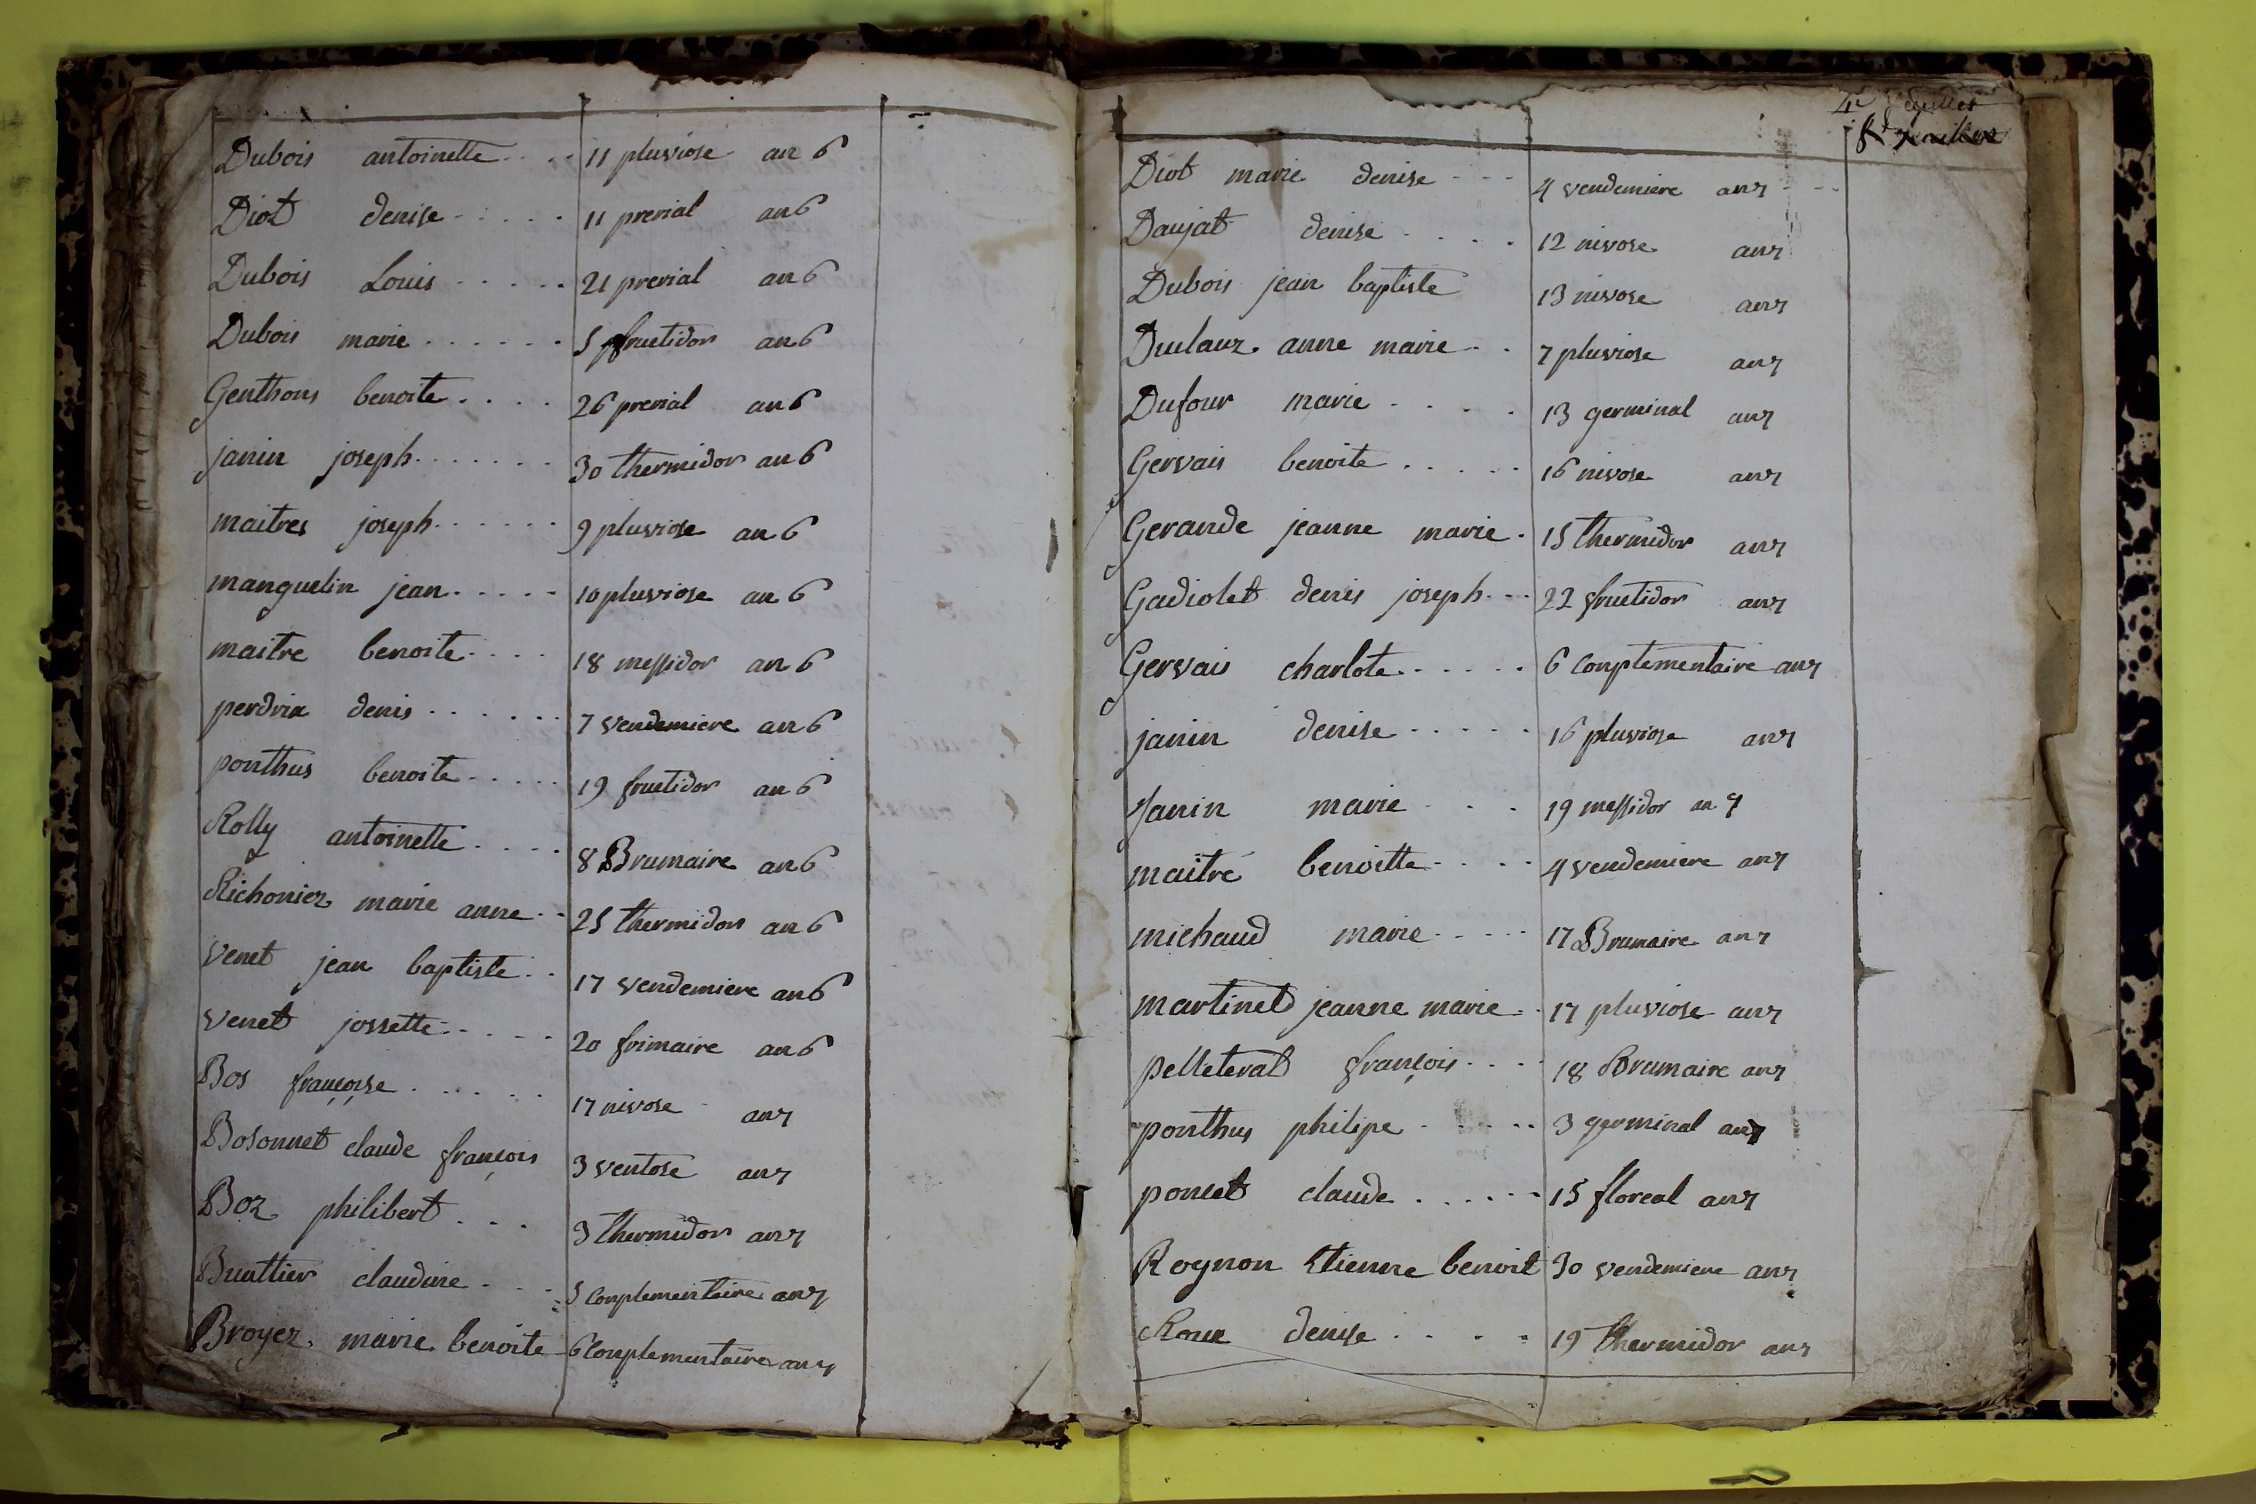 Dubois antoinette .... 11 pluviose an 6
Diot denise ..... 11 prerial an 6
Dubois Louis ..... 21 prerial an 6
Dubois marie ...... 5 fructidor an 6
Genthons benoite .... 26 prerial an 6
janin joseph ...... 30 thermidor an 6
maitres joseph ...... 9 pluviose an 6
manguelin jean ..... 10 pluviose an 6
maitre benoite .... 18 messidor an 6
perdrix denis ...... 7 vendemiere an 6
ponthus benoite ..... 19 fructidor an 6
Rolly antoinette .... 8 Brumaire an 6
Richonier marie anne .. 25 thermidor an 6
Venet jean baptiste .. 17 vendemiere an 6
Venet jossette ..... 20 frimaire an 6
Bos françoise ..... 17 nivose an 7
Bosonnet claude françois 3 ventose an 7
Boz philibert ... 3 thermidor an 7
Buattier claudine .... 5 conplementaire an 7
Broyer marie benoite 6 Conplementaire an 7
4e feuillet
Diot marie denise --- 4 vendemiere an 7
Daujat denise .... 12 nivose an 7
Dubois jean baptiste 13 nivose an 7
Duclaux anne marie .. 7 pluviose an 7
Dufour marie .... 13 germinal an 7
Gervais benoite ..... 16 nivose an 7
Gerande jeanne marie . 15 thermidor an 7
Gadiolet denis joseph --- 22 fructidor an 7
Gervais charlote ...... 6 Conplementaire an 7
janin denise ..... 16 pluviose an 7
Janin marie ... 19 messidor an 7
maitre benoitte .... 4 vendemiere an 7
michaud marie ..... 17 Brumaire an 7
martinet jeanne marie . 17 pluviose an 7
pelleterat françois .... 18 Brumaire an 7
ponthus philipe ..... 3 germinal an 7
poncet claude ...... 15 floreal an 7
Rognon Etienne benoit 30 vendemiere an 7
Roux denise .... 19 thermidor an 7